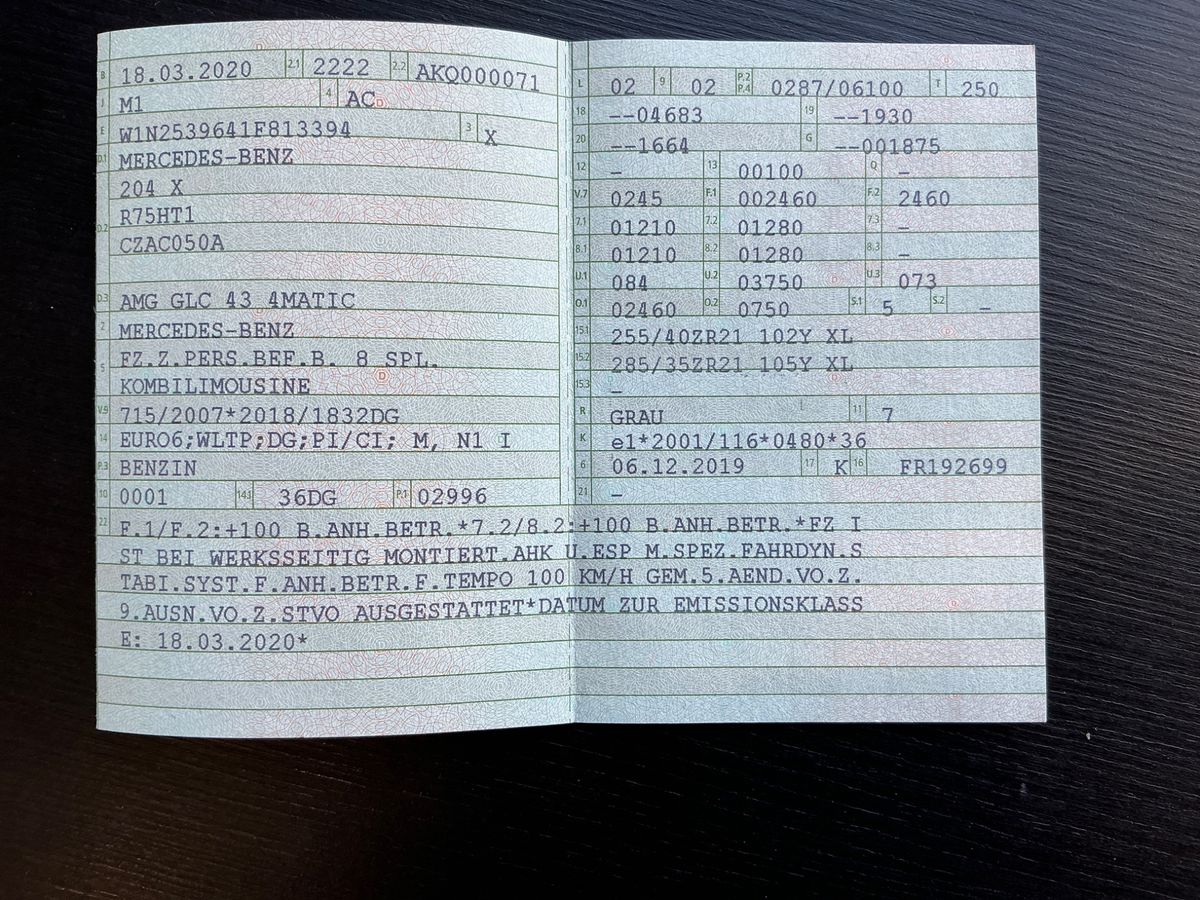 B 18.03.2020 2.1 2222 2.2 AKQ000071
J M1 4 AC
E W1N2539641F813394 3 X
D.1 MERCEDES-BENZ
204 X
D.2 R75HT1
CZAC050A
D.3 AMG GLC 43 4MATIC
2 MERCEDES-BENZ
5 FZ.Z.PERS.BEF.B. 8 SPL.
KOMBILIMOUSINE
V.9 715/2007*2018/1832DG
14 EURO6;WLTP;DG;PI/CI; M, N1 I
P.3 BENZIN
10 0001 14.1 36DG P.1 02996
L 02 9 02 P.2 P.4 0287/06100 T 250
18 --04683 19 --1930
20 --1664 G --001875
12 - 13 00100 Q -
V.7 0245 F.1 002460 F.2 2460
7.1 01210 7.2 01280 7.3 -
8.1 01210 8.2 01280 8.3 -
U.1 084 U.2 03750 U.3 073
O.1 02460 O.2 0750 S.1 5 S.2 -
15.1 255/40ZR21 102Y XL
15.2 285/35ZR21 105Y XL
15.3 -
R GRAU 11 7
K e1*2001/116*0480*36
6 06.12.2019 17 K 16 FR192699
21 -
22 F.1/F.2:+100 B.ANH.BETR.*7.2/8.2:+100 B.ANH.BETR.*FZ I
ST BEI WERKSSEITIG MONTIERT.AHK U.ESP M.SPEZ.FAHRDYN.S
TABI.SYST.F.ANH.BETR.F.TEMPO 100 KM/H GEM.5.AEND.VO.Z.
9.AUSN.VO.Z.STVO AUSGESTATTET*DATUM ZUR EMISSIONSKLASS
E: 18.03.2020*